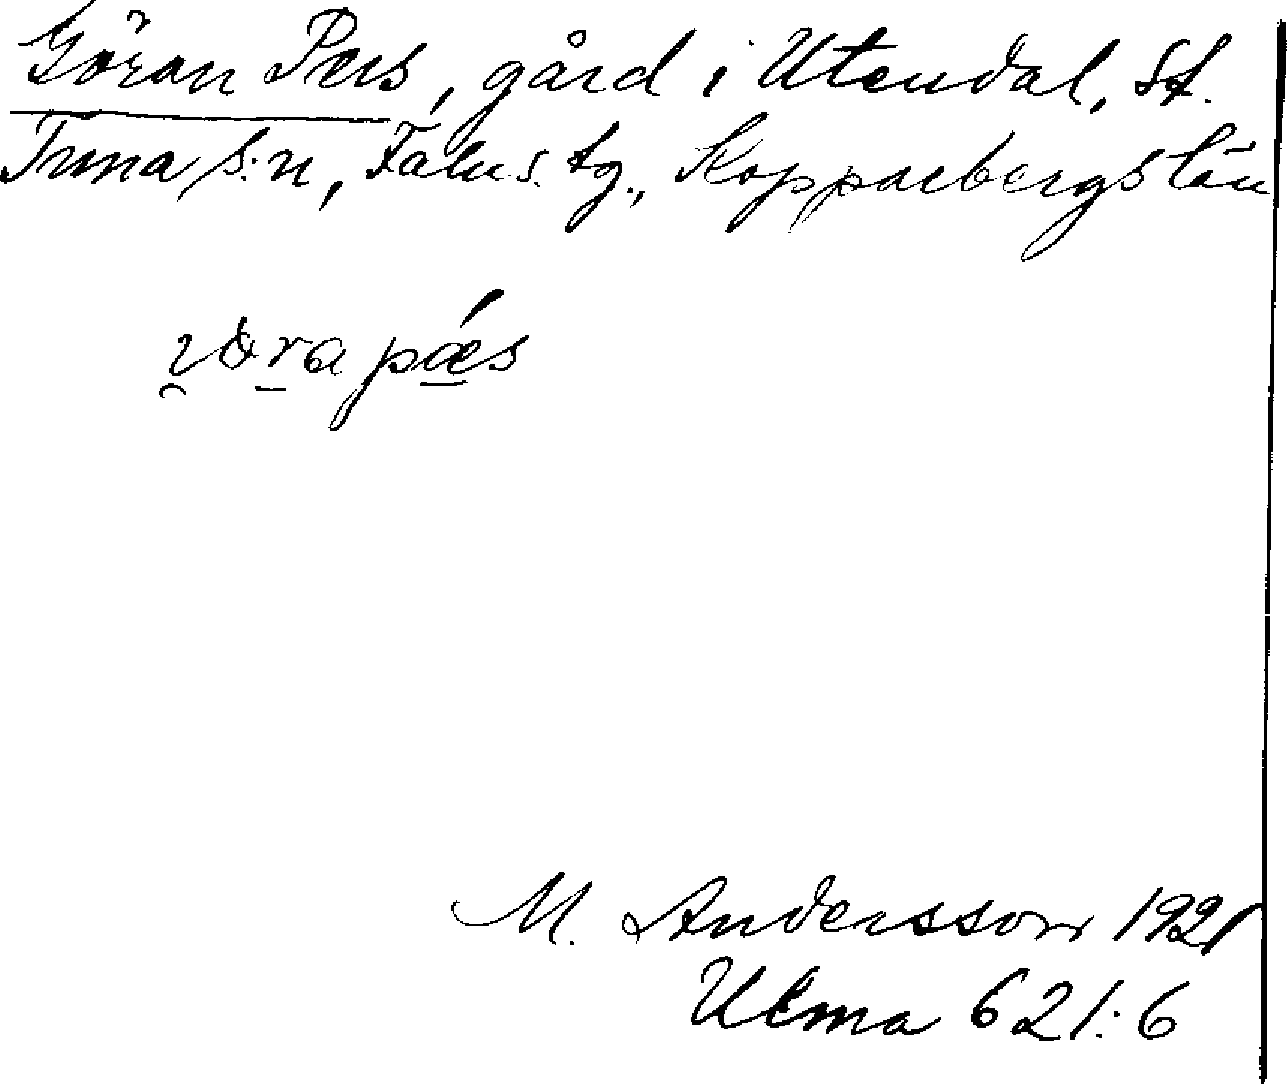 Göran Pers, gård i Utendal, St.
Tuna s:n, Falu s. tg., Kopparbergs län
pǽs
M. Andersson 1921
Ulma 621:6